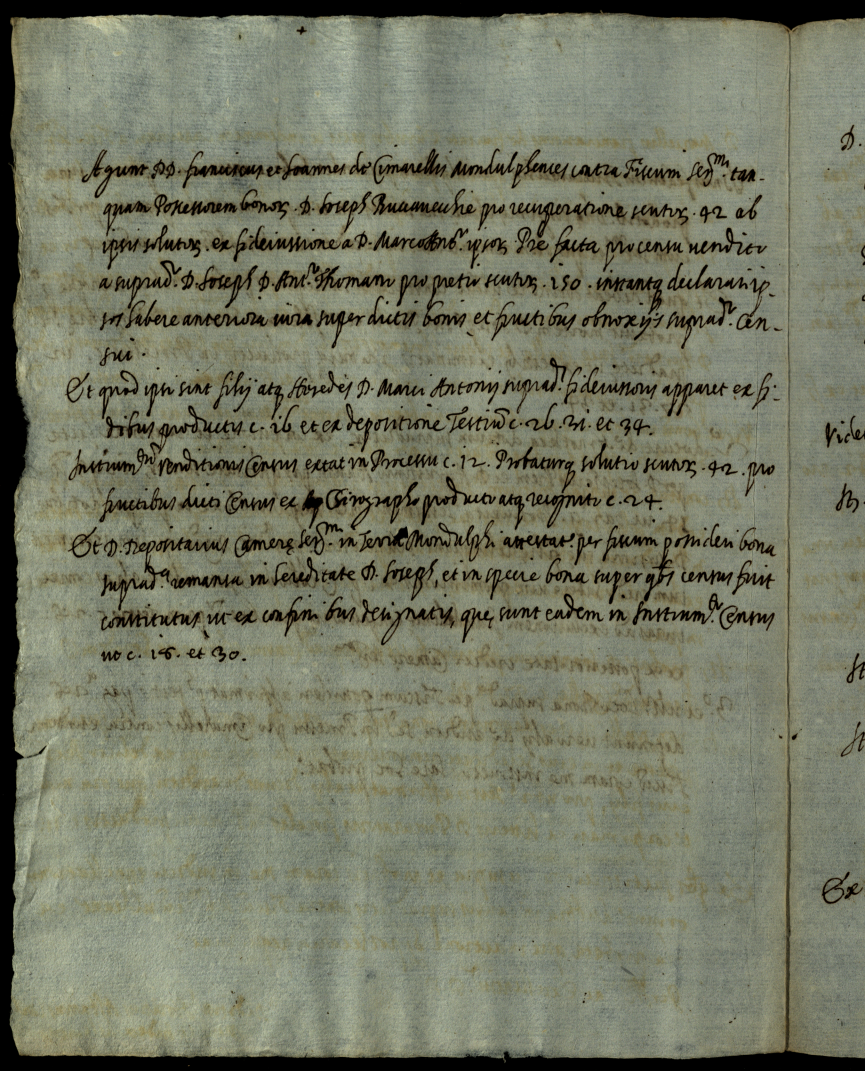 Agunt DD. Franciscus et Joannes de Cimarellis Mondulphenses contra Fiscum Ser.mi tan-
quam Possessorem bonor. D. Joseph pro recuperatione scutor. 42 ab
ipsis solutor. ex fideiussione a D. Marco Ant.o ipsor. Pre facta pro censu vendito
a suprad.o D. Joseph D. Ant.o Thomani pro pretio scutor. 150. instantq; declarari ip-
sos habere anteriora iura super dictis bonis et fructibus obnoxijs suprad.o Cen-
sui.
Et quod ipsi sint filij atq; Heredes D. Marci Antonij suprad.i fideiussoris apparet ex fi-
dibus productis c. 16 et ex depositione Testiu c. 26. 31. et 34.
Instrum.tum venditionis Census extat in Processu c. 12. Probaturq; solutio scutor. 42. pro
fructibus dicti Census ex Chirographo producto atq; recognito c. 24.
Et D. Depositarius Camerę Ser.mi in Terra Mondulphi attestat.r per fiscum possideri bona
suprad.a remansa in hereditate D. Joseph, et in specie bona super qbs census fuit
constitutus ut ex confinibus designatis, quę sunt eadem in Instrum.to Census
uo c. 18. et 30.
D.
Vide
St
St
Ex